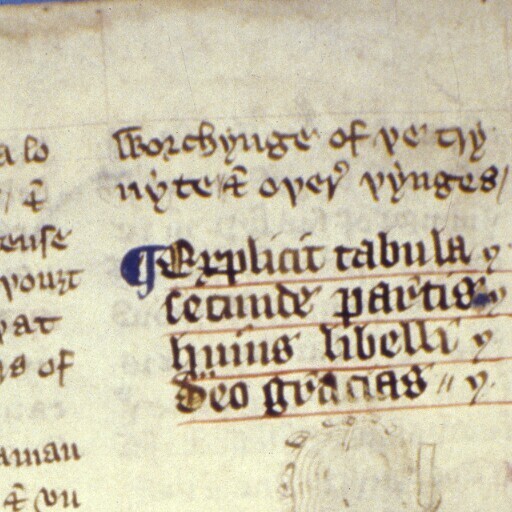 a lo
⁊
tense
yourt
yat
of
aman
⁊ vn
worchynge of ye try
nyte ⁊ oyer yynges/
¶Explicit tabula y
secunde partis y
huius libelli y
deo gracias // y.